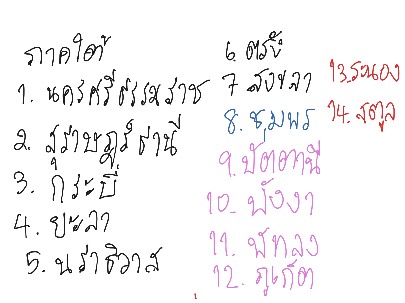 ภาคใต้
1. นครศรีธรรมราช
2. สุราษฎร์ธานี
3. กระบี่
4. ยะลา
5. นราธิวาส
6. ตรัง
7. สงขลา
8. ชุมพร
9. ปัตตานี
10. พังงา
11. พัทลุง
12. ภูเก็ต
13. ระนอง
14. สตูล